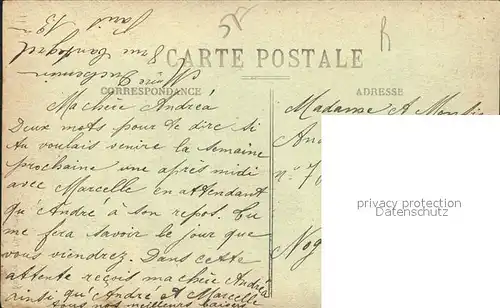 CARTE POSTALE
CORRESPONDANCE
ADRESSE
Ma chère Andréa
Deux mots pour te dire si
tu voulais venire la semaine
prochaine une après midi
avec Marcelle en attendant
qu'André à son repos. Tu
me fera savoir le jour que
vous viendrez. Dans cette
attente reçois ma chère Andréa
ainsi qu'André et Marcelle
tous nos meilleurs baisers
Madame A
n° 7
Nog
privacy protection
Datenschutz